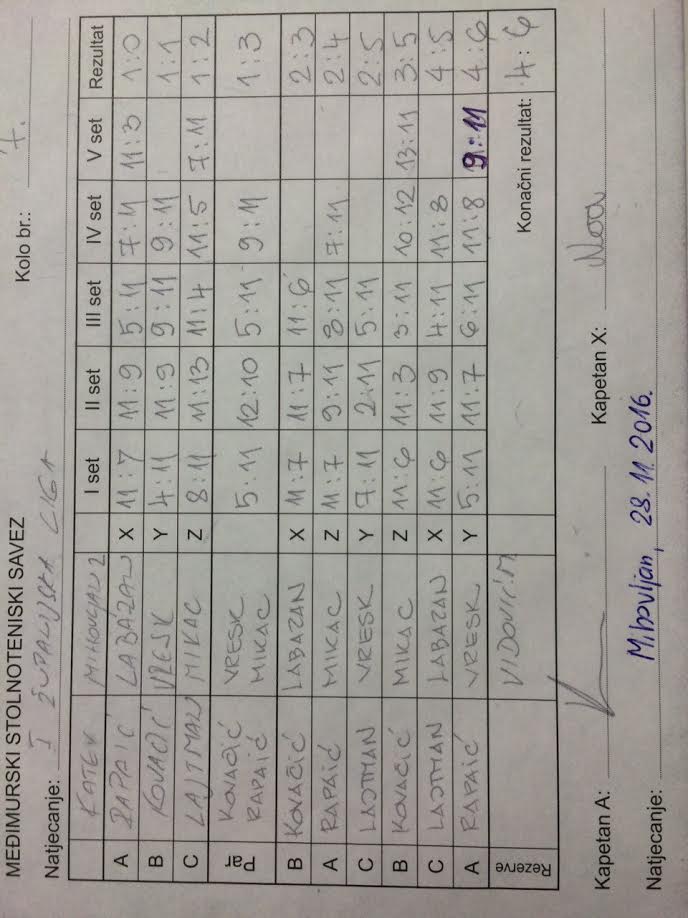 MEĐIMURSKI STOLNOTENISKI SAVEZ
Natjecanje: I ŽUPANIJSKA LIGA Kolo br.: 7.
KATEX MIHOVLJAN 2 I set II set III set IV set V set Rezultat
A RAPAIĆ LABAZAN X 11:7 11:9 5:11 7:11 11:3 1:0
B KOVAČIĆ VRESK Y 4:11 11:9 9:11 9:11 1:1
C LAJTMAN MIKAC Z 8:11 11:13 11:4 11:5 7:11 1:2
Par KOVAČIĆ RAPAIĆ VRESK MIKAC 5:11 12:10 5:11 9:11 1:3
B KOVAČIĆ LABAZAN X 11:7 11:7 11:6 2:3
A RAPAIĆ MIKAC Z 11:7 9:11 8:11 7:11 2:4
C LAJTMAN VRESK Y 7:11 2:11 5:11 2:5
B KOVAČIĆ MIKAC Z 11:6 11:3 3:11 10:12 13:11 3:5
C LAJTMAN LABAZAN X 11:6 11:9 4:11 11:8 4:5
A RAPAIĆ VRESK Y 5:11 11:7 6:11 11:8 9:11 4:6
Rezerve VIDOVIĆ M. Konačni rezultat: 4:6
Kapetan A: Kapetan X:
Natjecanje: Mihovljan, 28.11.2016.